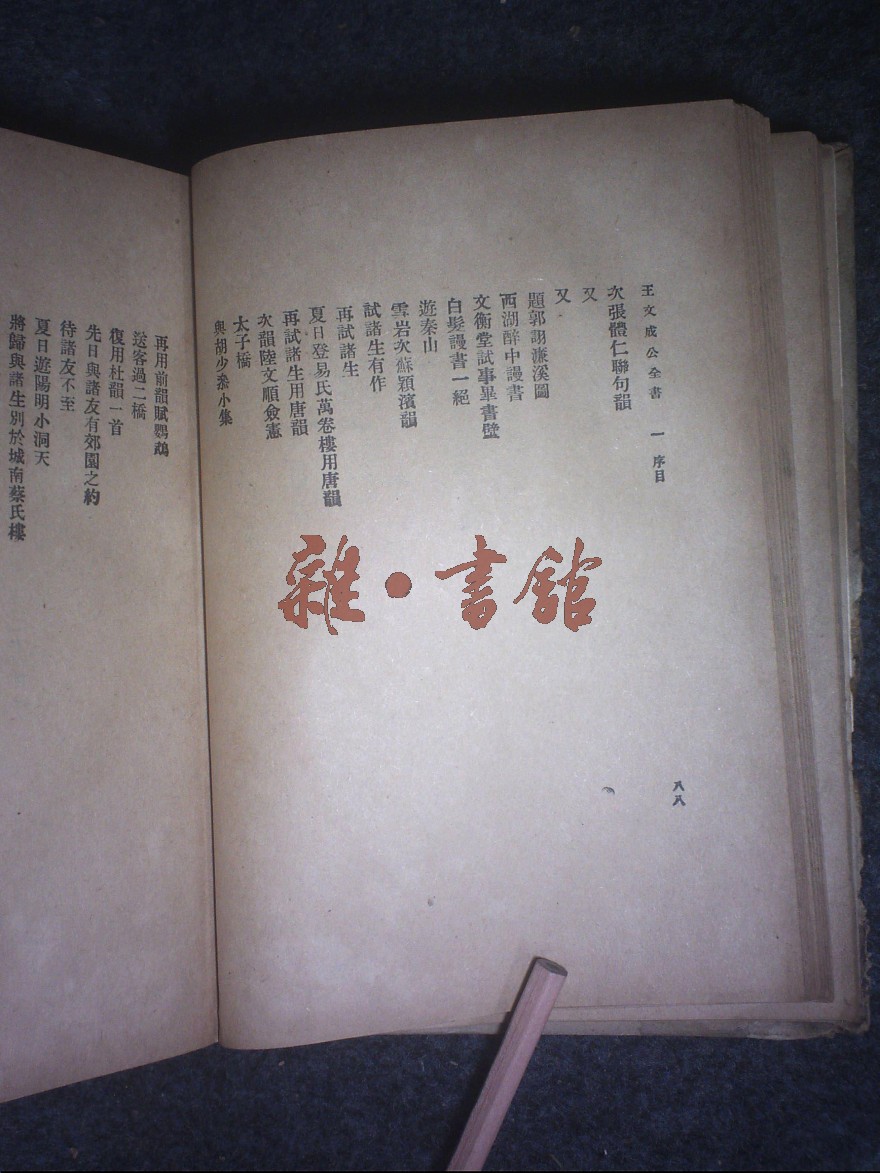 王文成公全書 一 序目
八八
次張體仁聯句韻
又
又
題郭詡濂溪圖
西湖醉中謾書
文衡堂試事畢書壁
白髮謾書一絕
遊泰山
雪岩次蘇潁濱韻
試諸生有作
再試諸生
夏日登易氏萬卷樓用唐韻
再試諸生用唐韻
次韻陸文順僉憲
太子橋
與胡少參小集
再用前韻賦鸚鵡
送客過二橋
復用杜韻一首
先日與諸友有郊園之約
待諸友不至
夏日遊陽明小洞天
將歸與諸生別於城南蔡氏樓
雜·書館